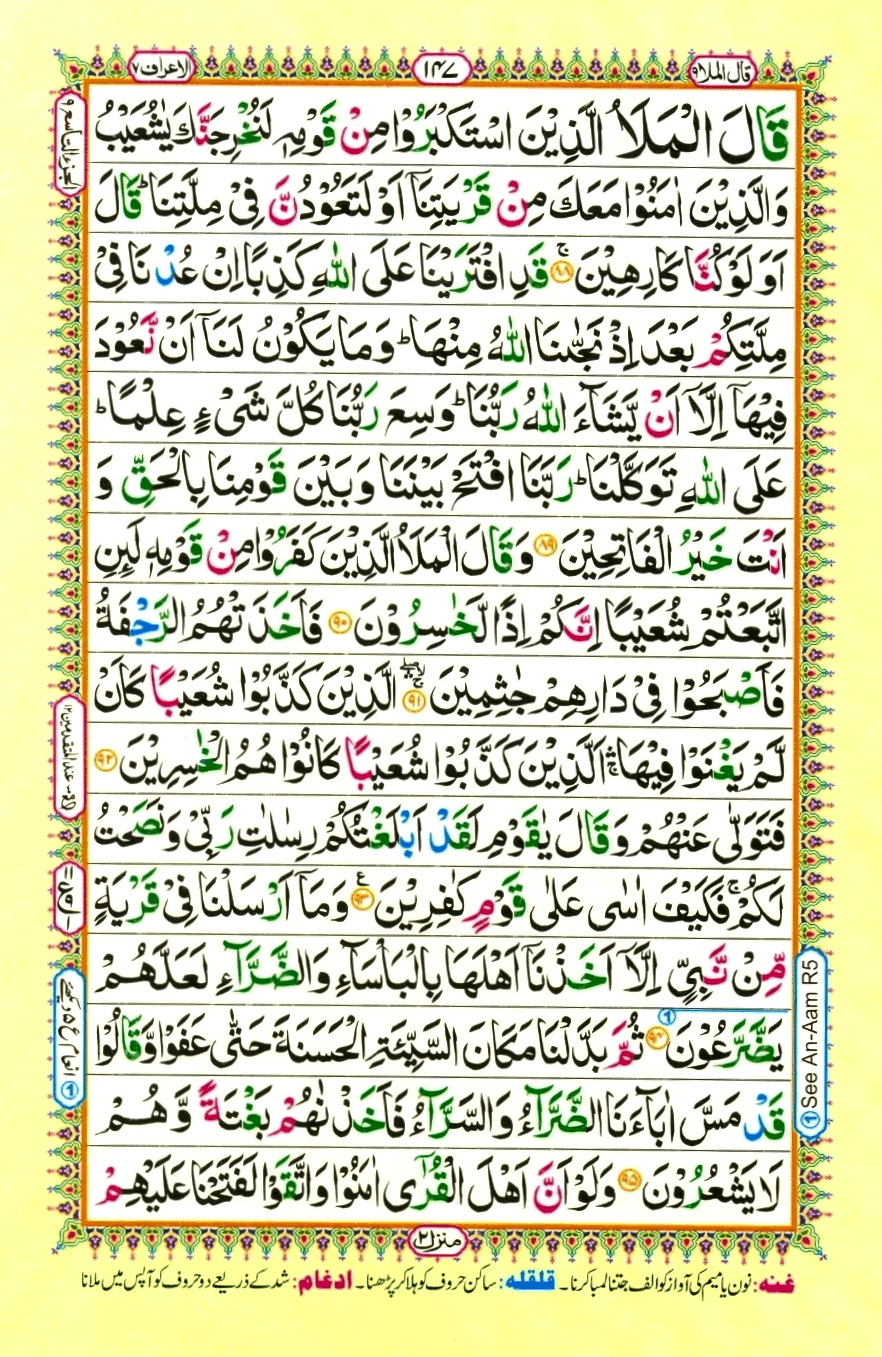 قال الملا٩
١٤٧
الاعراف٧
قَالَ الْمَلَاُ الَّذِیْنَ اسْتَکْبَرُوْا مِنْ قَوْمِهٖ لَنُخْرِجَنَّكَ یٰشُعَیْبُ
وَالَّذِیْنَ اٰمَنُوْا مَعَكَ مِنْ قَرْیَتِنَاۤ اَوْ لَتَعُوْدُنَّ فِیْ مِلَّتِنَا ؕ قَالَ
اَوَلَوْ کُنَّا کَارِهِیْنَ ۚ ﴿٨٨﴾ قَدِ افْتَرَیْنَا عَلَی اللّٰهِ کَذِبًا اِنْ عُدْنَا فِیْ
مِلَّتِکُمْ بَعْدَ اِذْ نَجّٰىنَا اللّٰهُ مِنْهَا ؕ وَمَا یَکُوْنُ لَنَاۤ اَنْ نَّعُوْدَ
فِیْهَاۤ اِلَّاۤ اَنْ یَّشَآءَ اللّٰهُ رَبُّنَا ؕ وَسِعَ رَبُّنَا کُلَّ شَیْءٍ عِلْمًا ؕ
عَلَی اللّٰهِ تَوَکَّلْنَا ؕ رَبَّنَا افْتَحْ بَیْنَنَا وَبَیْنَ قَوْمِنَا بِالْحَقِّ وَ
اَنْتَ خَیْرُ الْفَاتِحِیْنَ ﴿٨٩﴾ وَقَالَ الْمَلَاُ الَّذِیْنَ کَفَرُوْا مِنْ قَوْمِهٖ لَىِٕنِ
اتَّبَعْتُمْ شُعَیْبًا اِنَّکُمْ اِذًا لَّخٰسِرُوْنَ ﴿٩٠﴾ فَاَخَذَتْهُمُ الرَّجْفَةُ
فَاَصْبَحُوْا فِیْ دَارِهِمْ جٰثِمِیْنَ ﴿٩١﴾ الَّذِیْنَ کَذَّبُوْا شُعَیْبًا کَاَنْ
لَّمْ یَغْنَوْا فِیْهَا ۛۚ اَلَّذِیْنَ کَذَّبُوْا شُعَیْبًا کَانُوْا هُمُ الْخٰسِرِیْنَ ﴿٩٢﴾
فَتَوَلّٰی عَنْهُمْ وَقَالَ یٰقَوْمِ لَقَدْ اَبْلَغْتُکُمْ رِسٰلٰتِ رَبِّیْ وَنَصَحْتُ
لَکُمْ ۚ فَکَیْفَ اٰسٰی عَلٰی قَوْمٍ کٰفِرِیْنَ ﴿٩٣﴾ وَمَاۤ اَرْسَلْنَا فِیْ قَرْیَةٍ
مِّنْ نَّبِیٍّ اِلَّاۤ اَخَذْنَاۤ اَهْلَهَا بِالْبَاْسَآءِ وَالضَّرَّآءِ لَعَلَّهُمْ
یَضَّرَّعُوْنَ ﴿٩٤﴾ ① ثُمَّ بَدَّلْنَا مَکَانَ السَّیِّئَةِ الْحَسَنَةَ حَتّٰی عَفَوْا وَّقَالُوْا
قَدْ مَسَّ اٰبَآءَنَا الضَّرَّآءُ وَالسَّرَّآءُ فَاَخَذْنٰهُمْ بَغْتَةً وَّهُمْ
لَا یَشْعُرُوْنَ ﴿٩٥﴾ وَلَوْ اَنَّ اَهْلَ الْقُرٰۤی اٰمَنُوْا وَاتَّقَوْا لَفَتَحْنَا عَلَیْهِمْ
منزل٢
الجزء التاسع ٩
① انعام ع ۵ دیکھئے
① See An-Aam R5
غنه: نون یا میم کی آواز کو الف جتنا لمبا کرنا۔ قلقله: ساکن حروف کو ہلا کر پڑھنا۔ ادغام: شد کے ذریعے دو حروف کو آپس میں ملانا